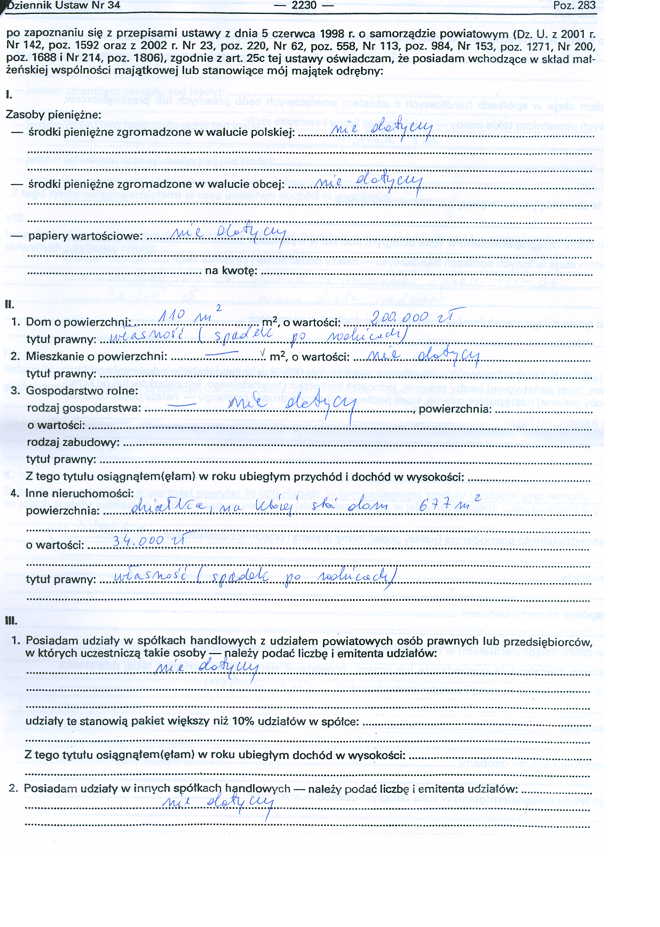 Dziennik Ustaw Nr 34 — 2230 — Poz. 283
po zapoznaniu się z przepisami ustawy z dnia 5 czerwca 1998 r. o samorządzie powiatowym (Dz. U. z 2001 r.
Nr 142, poz. 1592 oraz z 2002 r. Nr 23, poz. 220, Nr 62, poz. 558, Nr 113, poz. 984, Nr 153, poz. 1271, Nr 200,
poz. 1688 i Nr 214, poz. 1806), zgodnie z art. 25c tej ustawy oświadczam, że posiadam wchodzące w skład mał-
żeńskiej wspólności majątkowej lub stanowiące mój majątek odrębny:
I.
Zasoby pieniężne:
— środki pieniężne zgromadzone w walucie polskiej: nie dotyczy
— środki pieniężne zgromadzone w walucie obcej: nie dotyczy
— papiery wartościowe: nie dotyczy
na kwotę:
II.
1. Dom o powierzchni: 110 m² m², o wartości: 200.000 zł
tytuł prawny: własność (spadek po rodzicach)
2. Mieszkanie o powierzchni: — m², o wartości: nie dotyczy
tytuł prawny:
3. Gospodarstwo rolne:
rodzaj gospodarstwa: — nie dotyczy, powierzchnia:
o wartości:
rodzaj zabudowy:
tytuł prawny:
Z tego tytułu osiągnąłem(ęłam) w roku ubiegłym przychód i dochód w wysokości:
4. Inne nieruchomości:
powierzchnia: działka, na której stoi dom 677 m²
o wartości: 34.000 zł
tytuł prawny: własność (spadek po rodzicach)
III.
1. Posiadam udziały w spółkach handlowych z udziałem powiatowych osób prawnych lub przedsiębiorców,
w których uczestniczą takie osoby — należy podać liczbę i emitenta udziałów:
nie dotyczy
udziały te stanowią pakiet większy niż 10% udziałów w spółce:
Z tego tytułu osiągnąłem(ęłam) w roku ubiegłym dochód w wysokości:
2. Posiadam udziały w innych spółkach handlowych — należy podać liczbę i emitenta udziałów:
nie dotyczy